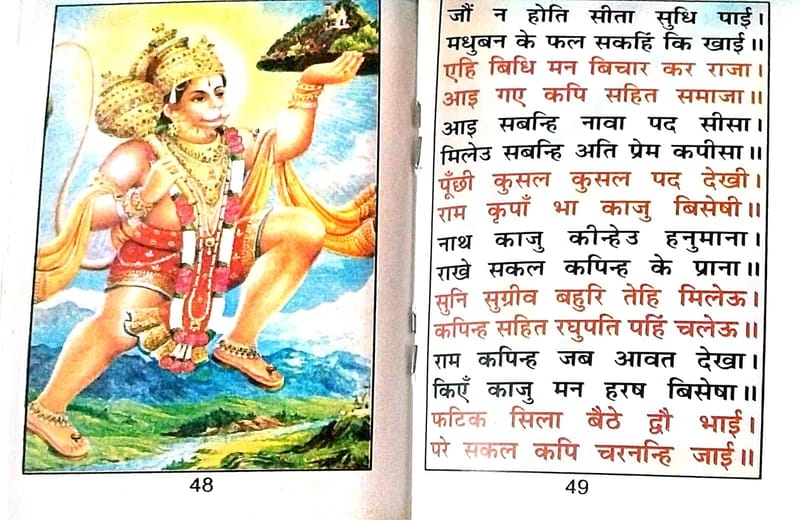 48
जौं न होति सीता सुधि पाई।
मधुबन के फल सकहिं कि खाई॥
एहि बिधि मन बिचार कर राजा।
आइ गए कपि सहित समाजा॥
आइ सबन्हि नावा पद सीसा।
मिलेउ सबन्हि अति प्रेम कपीसा॥
पूँछी कुसल कुसल पद देखी।
राम कृपाँ भा काजु बिसेषी॥
नाथ काजु कीन्हेउ हनुमाना।
राखे सकल कपिन्ह के प्राना॥
सुनि सुग्रीव बहुरि तेहि मिलेऊ।
कपिन्ह सहित रघुपति पहिं चलेऊ॥
राम कपिन्ह जब आवत देखा।
किएँ काजु मन हरष बिसेषा॥
फटिक सिला बैठे द्वौ भाई।
परे सकल कपि चरनन्हि जाई॥
49